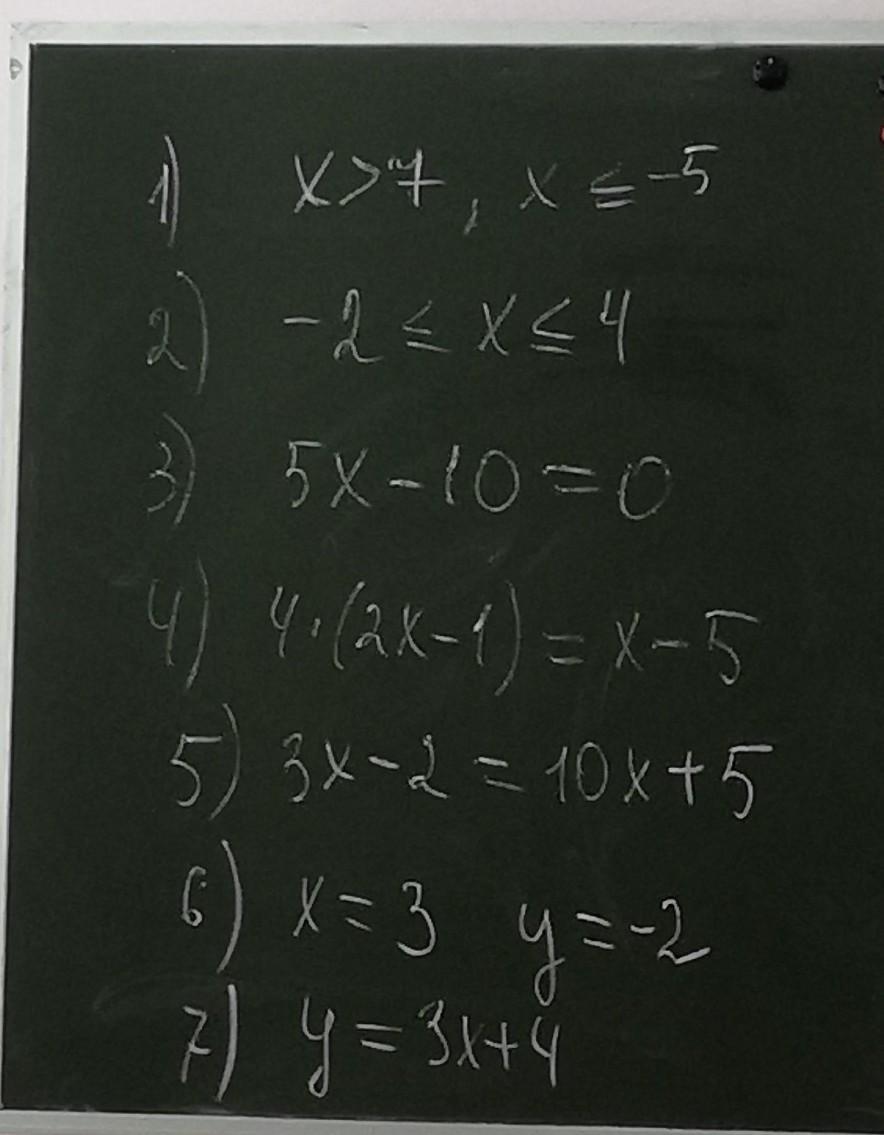 1) x>7, x ≤ -5
2) -2 ≤ x ≤ 4
3) 5x-10=0
4) 4·(2x-1)=x-5
5) 3x-2=10x+5
6) x=3 y=-2
7) y=3x+4